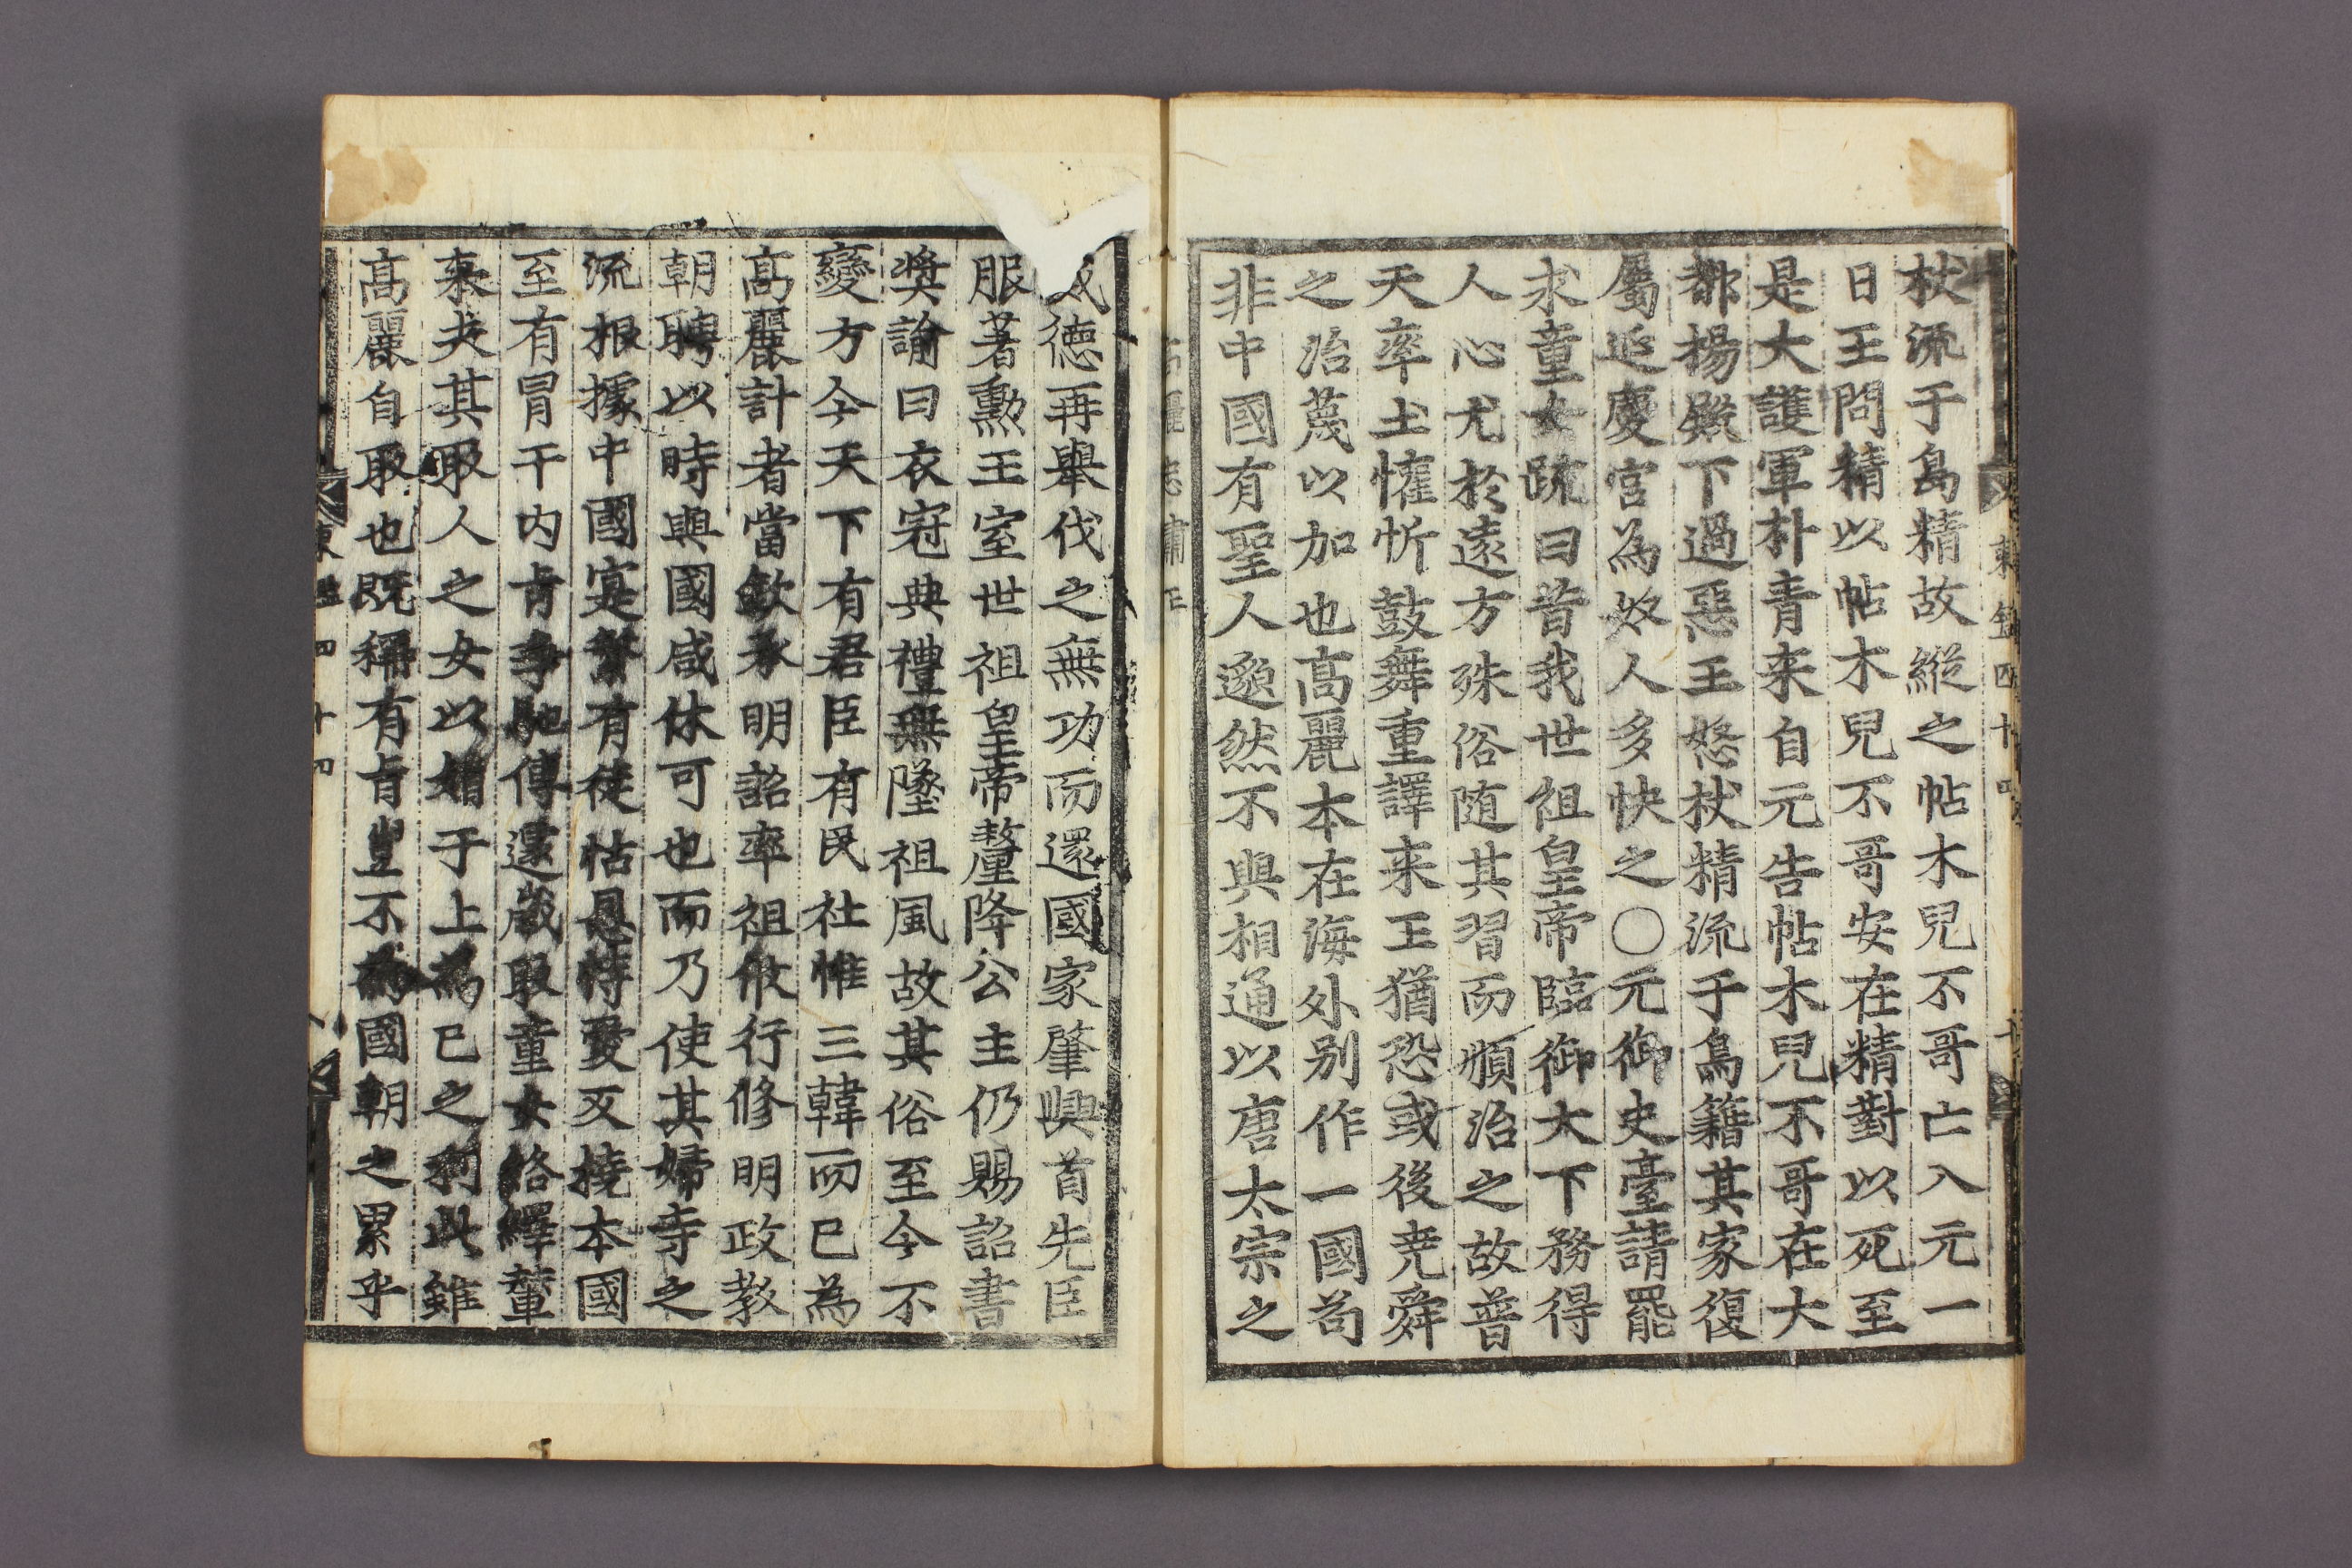 杖流于島精故縱之帖木兒不哥亡入元一
日王問精以帖木兒不哥安在精對以死至
是大護軍朴青来自元告帖木兒不哥在大
都揚殿下過惡王怒杖精流于島籍其家復
屬延慶宮為奴人多快之〇元御史臺請罷
求童女疏曰昔我世祖皇帝臨御大下務得
人心尤於遠方殊俗随其習而順治之故普
天率土懽忻鼓舞重譯来王猶恐或後尭舜
之治蔑以加也高麗本在海外别作一國苟
非中國有聖人邈然不與相通以唐太宗之
威德再舉伐之無功而還國家肇興首先臣
服著勲王室世祖皇帝釐降公主仍賜詔書
奬諭曰衣冠典禮無墜祖風故其俗至今不
變方今天下有君臣有民社惟三韓而已為
高麗計者當欽承明詔率祖攸行修明政教
朝聘以時與國咸休可也而乃使其婦寺之
流根據中國寔繁有徒怙恩恃愛反撓本國
至有冒干内旨爭馳傳遽歳取童女絡繹輦
来夫其取人之女以媚于上為己之利此雖
高麗自取也既稱有旨豈不為國朝之累乎
東鑑四十四